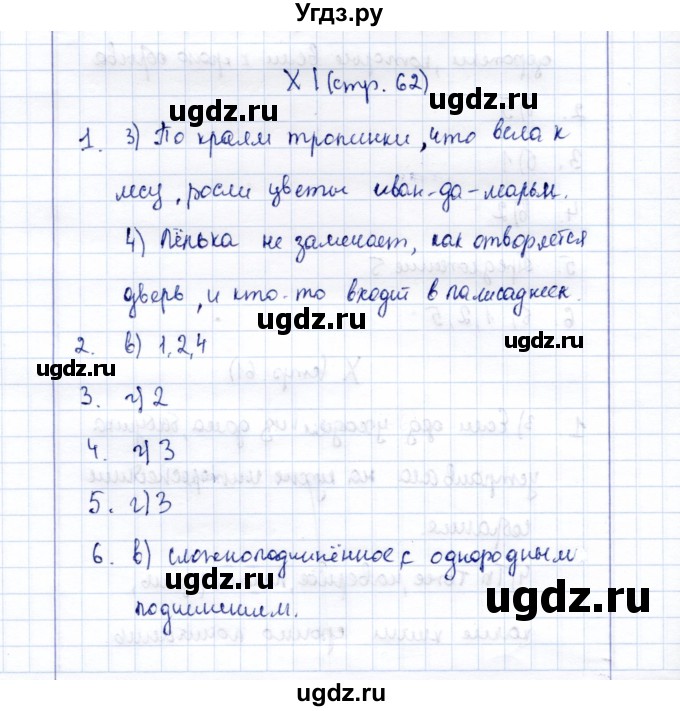 Угдз.ру
XI (стр. 62)
ugdz.ru ugdz.ru
1. 3) По краям тропинки, что вела к
лесу, росли цветы иван-да-марьи.
ugdz.ru
4) Пенька не замечает, как отворяется
дверь, и кто-то входит в палисадник.
ugdz.ru
2. в) 1, 2, 4
ugdz.ru ugdz.ru
3. г) 2
4. г) 3
ugdz.ru
5. г) 3
6. в) сложноподчинённое с однородным
ugdz.ru ugdz.ru
подчинением.
ugdz.ru
ugdz.ru